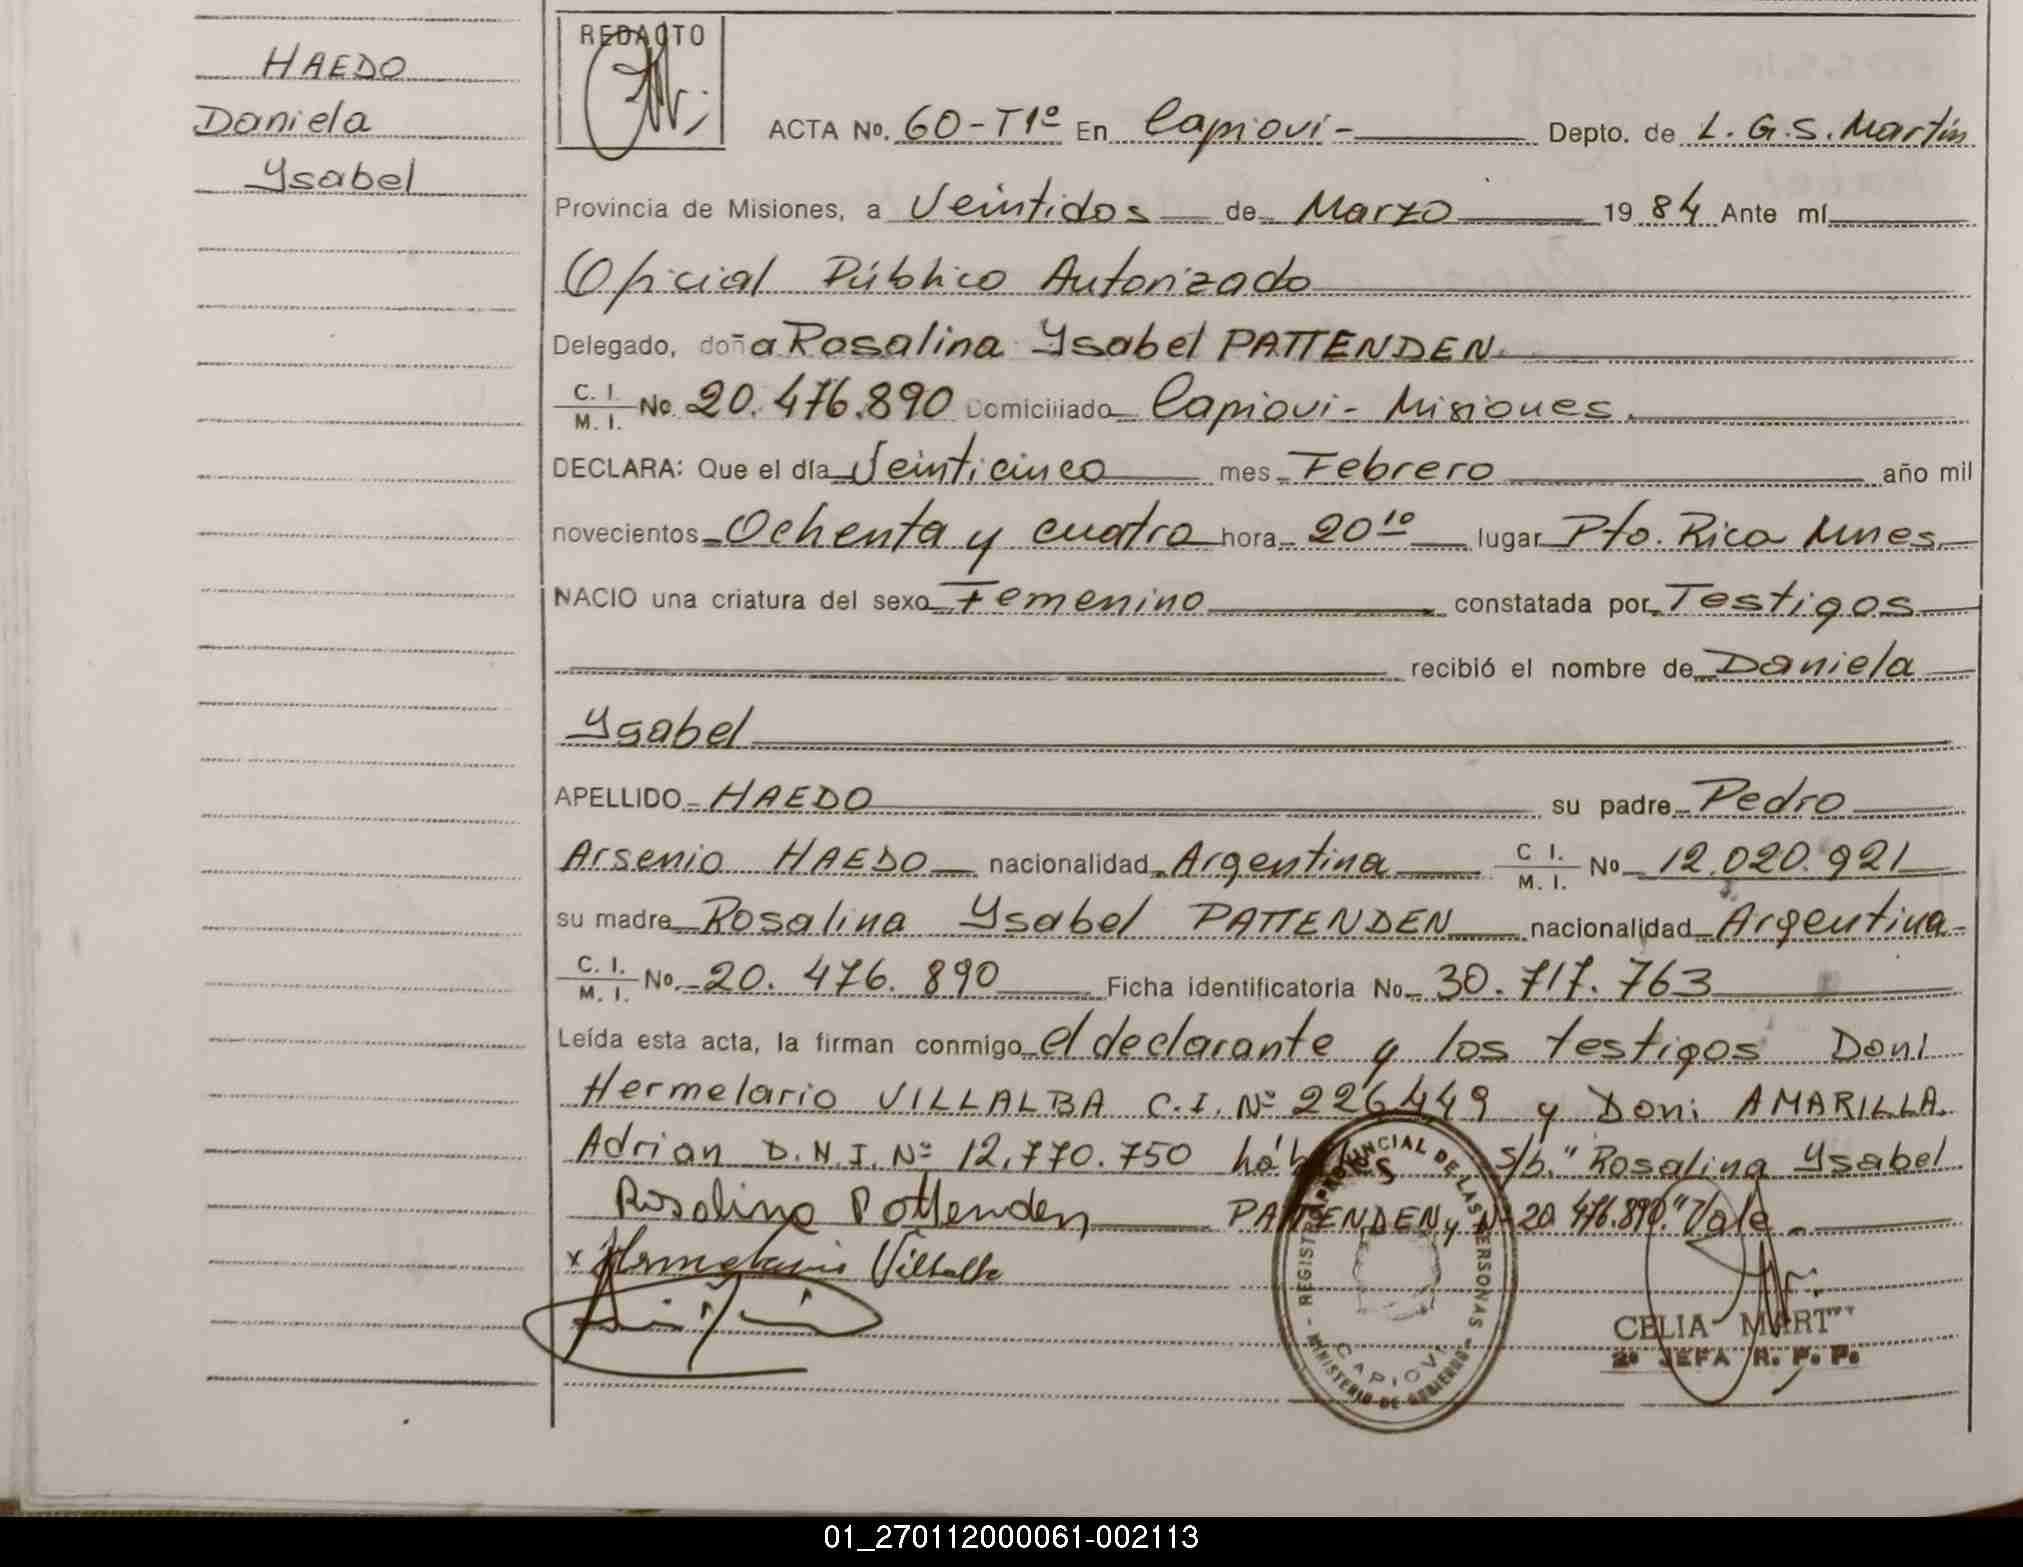 HAEDO
Daniela
Ysabel
REDACTO
ACTA No. 60-T1º En Capioví- Depto. de L.G.S. Martín
Provincia de Misiones, a Veintidos de Marzo 1984 Ante mí
Oficial Público Autorizado
Delegado, doña Rosalina Ysabel PATTENDEN
C. I. M. I. No. 20.476.890 Domiciliado Capiovi- Misiones.
DECLARA: Que el día Veinticinco mes Febrero año mil
novecientos Ochenta y cuatro hora 20¹⁰ lugar Pto. Rico Mnes
NACIO una criatura del sexo Femenino constatada por Testigos
recibió el nombre de Daniela
Ysabel
APELLIDO HAEDO su padre Pedro
Arsenio HAEDO nacionalidad Argentina C I. M. I. No 12.020.921
su madre Rosalina Ysabel PATTENDEN nacionalidad Argentina
C. I. M. I. No. 20.476.890 Ficha identificatoria No. 30.717.763
Leída esta acta, la firman conmigo el declarante y los testigos Don:
Hermelario VILLALBA C.I. Nº 226449 y Don: AMARILLA
Adrian D.N.I. Nº 12.770.750 hábiles s/b. "Rosalina Ysabel
Rosalina Pattenden PATTENDEN y Nº 20.476.890." Vale.
x Hermelario Villalba
REGISTRO PROVINCIAL DE LAS PERSONAS
CAPIOVI
MINISTERIO DE GOBIERNO
CELIA MART
2º JEFA R. P. P.
01_270112000061-002113